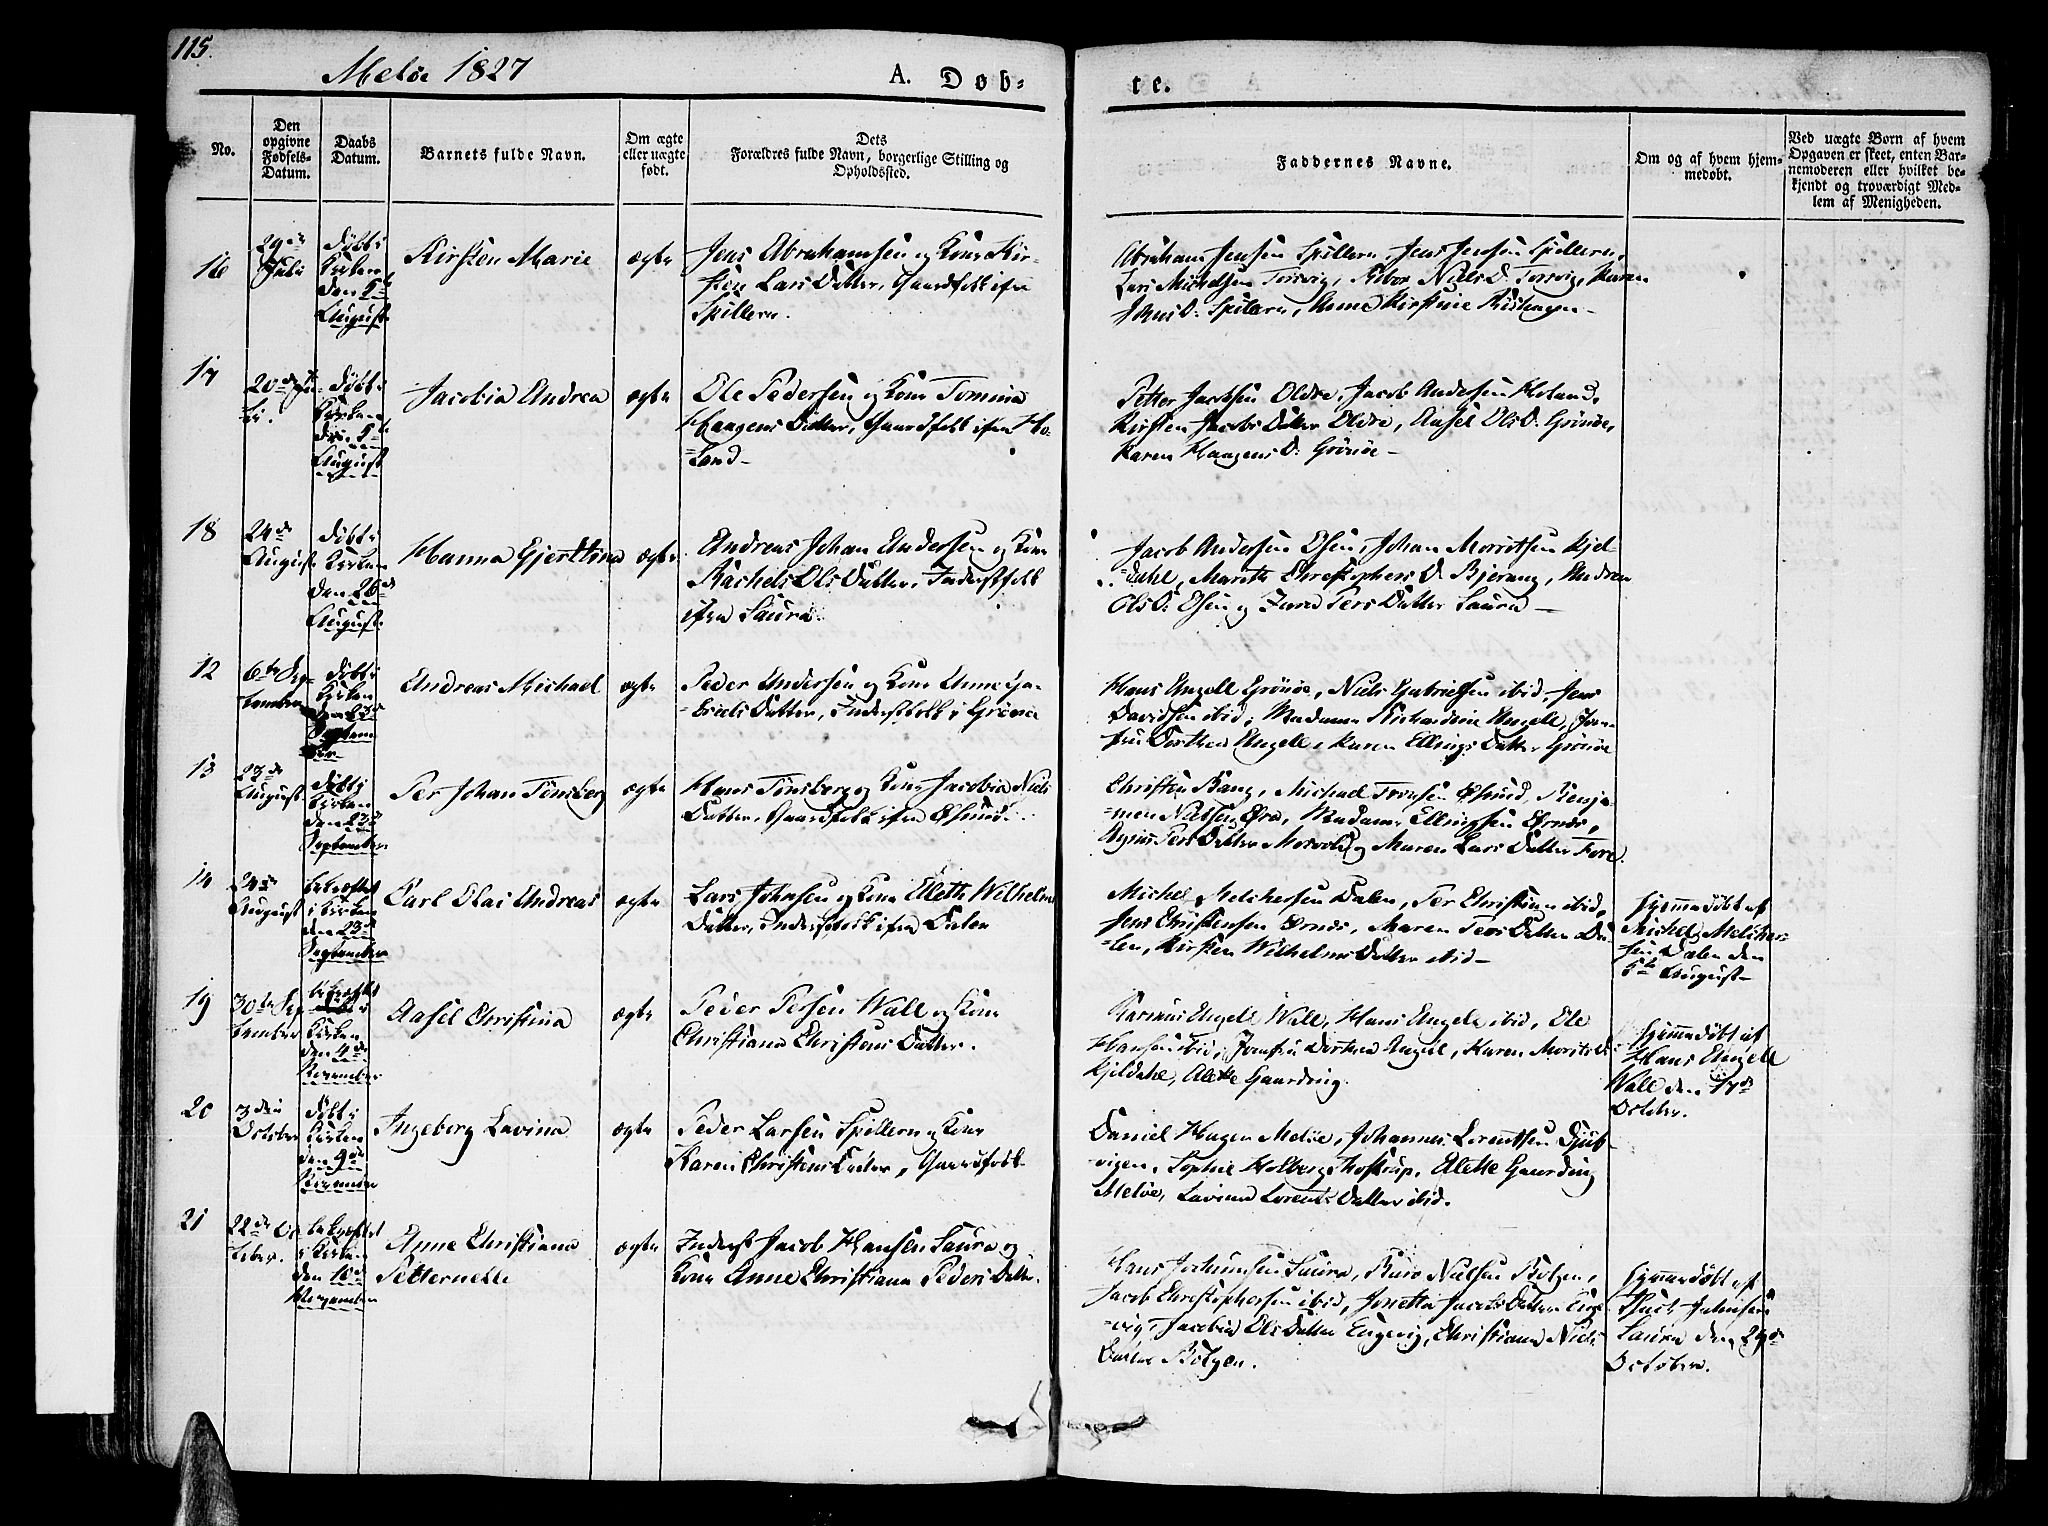 115.
Meløe 1827
A. Døb-
te.
No.
Den opgivne Fødsels-Datum.
Daabs Datum.
Barnets fulde Navn.
Om ægte eller uægte født.
Dets Forældres fulde Navn, borgerlige Stilling og Opholdssted.
Faddernes Navne.
Om og af hvem hjem-
medøbt.
Ved uægte Børn af hvem
Opgaven er skeet, enten Bar-
nemoderen eller hvilket be-
kjendt og troværdigt Med-
lem af Menigheden.
16
29de
Juli
døbt i
Kirken
den 5te
August
Kirsten Marie
ægte
Jens Abrahamsen og Kone Kir-
sten Lars Datter, Gaardfolk ifra
Spilleren.
Abraham Jensen Spilleren, Jens Jensen Spilleren,
Lars Michelsen Torsvig, Niels D. Torsvig, Karen
Jens D. Spilleren, Anna Kirstine
17
20de Ju-
li.
døbt i
Kirken
den 5te
August
Jacobia Andrea
ægte
Ole Pedersen og Kone Tomina
Haagens Datter, Gaardfolk ifra Ho-
land
Petter Jacobsen Oldre, Jacob Andersen Holand,
Kirsten Jacobs Datter Oldre, Aasel Ols D. Grönöe,
Karen Haagens D. Grönöe
18
24de
August
døbt i
Kirken
den 26de
August
Hanna Gjerttina
ægte
Andreas Johan Andersen og Kone
Rachel Ols Datter, Inderstfolk
ifra Saura.
Jacob Andersen Osen, Johan Morritsen Kjel-
dahl, Mareth Christophers D Bjerang, Andrea
Ols D. Osen og Pers Datter Saura
12
6te Sep-
tember
døbt i
Kirken
den 23de
Septem
ber
Andreas Michael
ægte
Peder Andersen og Kone Anne Ga-
briels Datter, Inderstfolk i Gröna
Hans Angell Grönöe, Niels Gabrielsen ibid, Jens
Davidsen ibid, Madame Richardine Angell, Jom-
fru Dorthea Angell, Karen Ellings Datter Grönöe
13
23de
August
døbt i
Kirken
den 23de
September
Per Johan Tönsberg
ægte
Hans Tönsberg og Kone Jacobia Niels
Datter, Gaardfolk ifra Øsund.
Christen Bang, Michael Øsund, Benja-
men Øra, Madame Ellingsen Ørnes,
Pers Datter og Maren Lars Datter Fore.
14
24de
August
bekræftet
i Kirken
den 23de
September
Carl Olai Andreas
ægte
Lars Johnsen og Kone Elleth Wilhelm
Datter, Inderstfolk ifra Dalen
Michel Melchersen Dalen, Per Christian ibid,
Jens Christensen Ørnes, Maren Pers Datter Da-
len, Kirsten Wilhelms Datter ibid
Hjemmedøbt af
Michel Melcher-
sen Dalen den
5te August
19
30te Sep-
tember
bekræftet
Kirken
den 4de
November
Aasel Christina
ægte
Peder Persen Wall og Kone
Christiana Christens Datter.
Rasmus Angell Wall, Hans Angell ibid, Ole
Hansen ibid, Jomfru Dorthea Angell, Karen Morits D.
Kjeldahl, Alette Gaarding.
Hjemmedøbt af
Hans Angell
Wall den 17de
October.
20
3die
October
døbt i
Kirken
den 9de
November
Ingeborg Lavina
ægte
Peder Larsen Spilleren og Kone
Karen Christens Datter, Gaardfolk
Daniel Hagen Meløe, Johannes Lorentsen Djub-
vigen, Sophie Holberg Kostrup, Alette Gaarding
Meløe, Lavina Lorents Datter ibid.
21
22de Oc-
tober.
bekræftet
i Kirken
den 16de
November
Anne Christiana
Petternelle
ægte
Inderst Jacob Hansen Saura og
Kone Anne Christiana Peders Datter.
Hans Jochumsen Saura, Nielsen Bolgen,
Jacob Christophersen ibid, Jonetta Jacobs Datter Enge-
vig, Jacobia Ols Datter Engevig, Christiana Niels
Datter Bolgen.
Hjemmedøbt af
Johnsen
Saura den 29de
October.